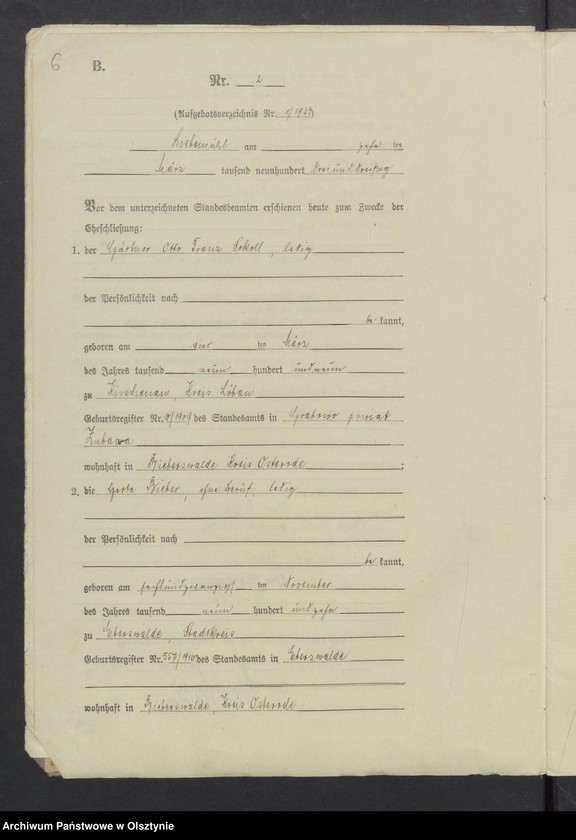 6
B.
Nr. 2
(Aufgebotsverzeichnis Nr. 1/1933)
Liebemühl am zehn ten
März tausend neunhundert dreiunddreißig
Vor dem unterzeichneten Standesbeamten erschienen heute zum Zwecke der
Eheschließung:
1. der Gärtner Otto Franz Sokoll, ledig
der Persönlichkeit nach
be kannt,
geboren am vier ten März
des Jahres tausend neun hundert undneun
zu Kirschenau, Kreis Löbau
Geburtsregister Nr. 9/1909 des Standesamts in Grabowo powiat
Lubawa
wohnhaft in Bieberswalde Kreis Osterode ;
2. die Herta Bieber, ohne Beruf, ledig
der Persönlichkeit nach
be kannt,
geboren am sechsundzwanzigs ten November
des Jahres tausend neun hundert undzehn
zu Eberswalde, Stadtkreis
Geburtsregister Nr. 557/1910 des Standesamts in Eberswalde
wohnhaft in Bieberswalde, Kreis Osterode
Archiwum Państwowe w Olsztynie